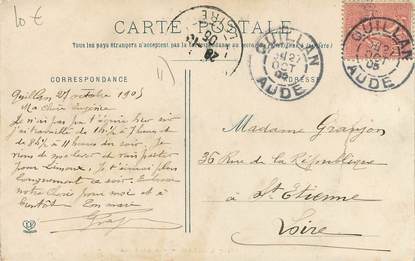 10€
CARTE POSTALE
Tous les pays étrangers n'acceptent pas la
CORRESPONDANCE
ADRESSE
QUILLAN
27
OCT
05
AUDE
QUILLAN
27
OCT
05
AUDE
LOIRE
28
Quillan 27 octobre 1905
Ma Chère Eugénie
Je n'ai pas pu t'écrire hier soir
j'ai travaillé de à 7 heures et
de à 11 heures du soir. Je
viens de me lever et vais partir
pour Limoux. Je t'écrirai plus
longuement ce soir. Embrasse
notre chérie pour moi et à
bientôt Ton mari
Madame Granjon
36 Rue de la République
à St Etienne
Loire